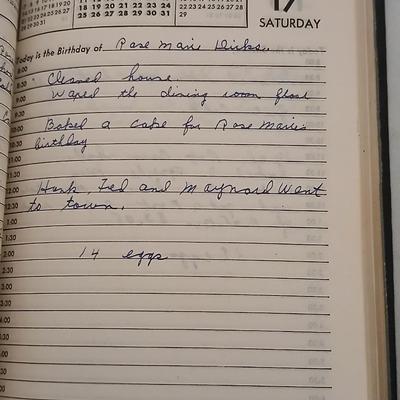 11 12 13 14 15 16 17
18 19 20 21 22 23 24
25 26 27 28 29 30 31
15 16 17 18 19 20 21
22 23 24 25 26 27 28
29
17
SATURDAY
Today is the Birthday of Rose Marie Dirks.
8:00
8:30 Cleaned house
9:00 Waxed the dining room floor
9:30
10:00 Baked a cake for Rose Marie
birthday
11:00
11:30
12:00 Hank, Ted and Maynard went
to town.
1:30
2:00 14 eggs
2:30
3:00
3:30
4:00
4:30
5:00
5:30
6:00